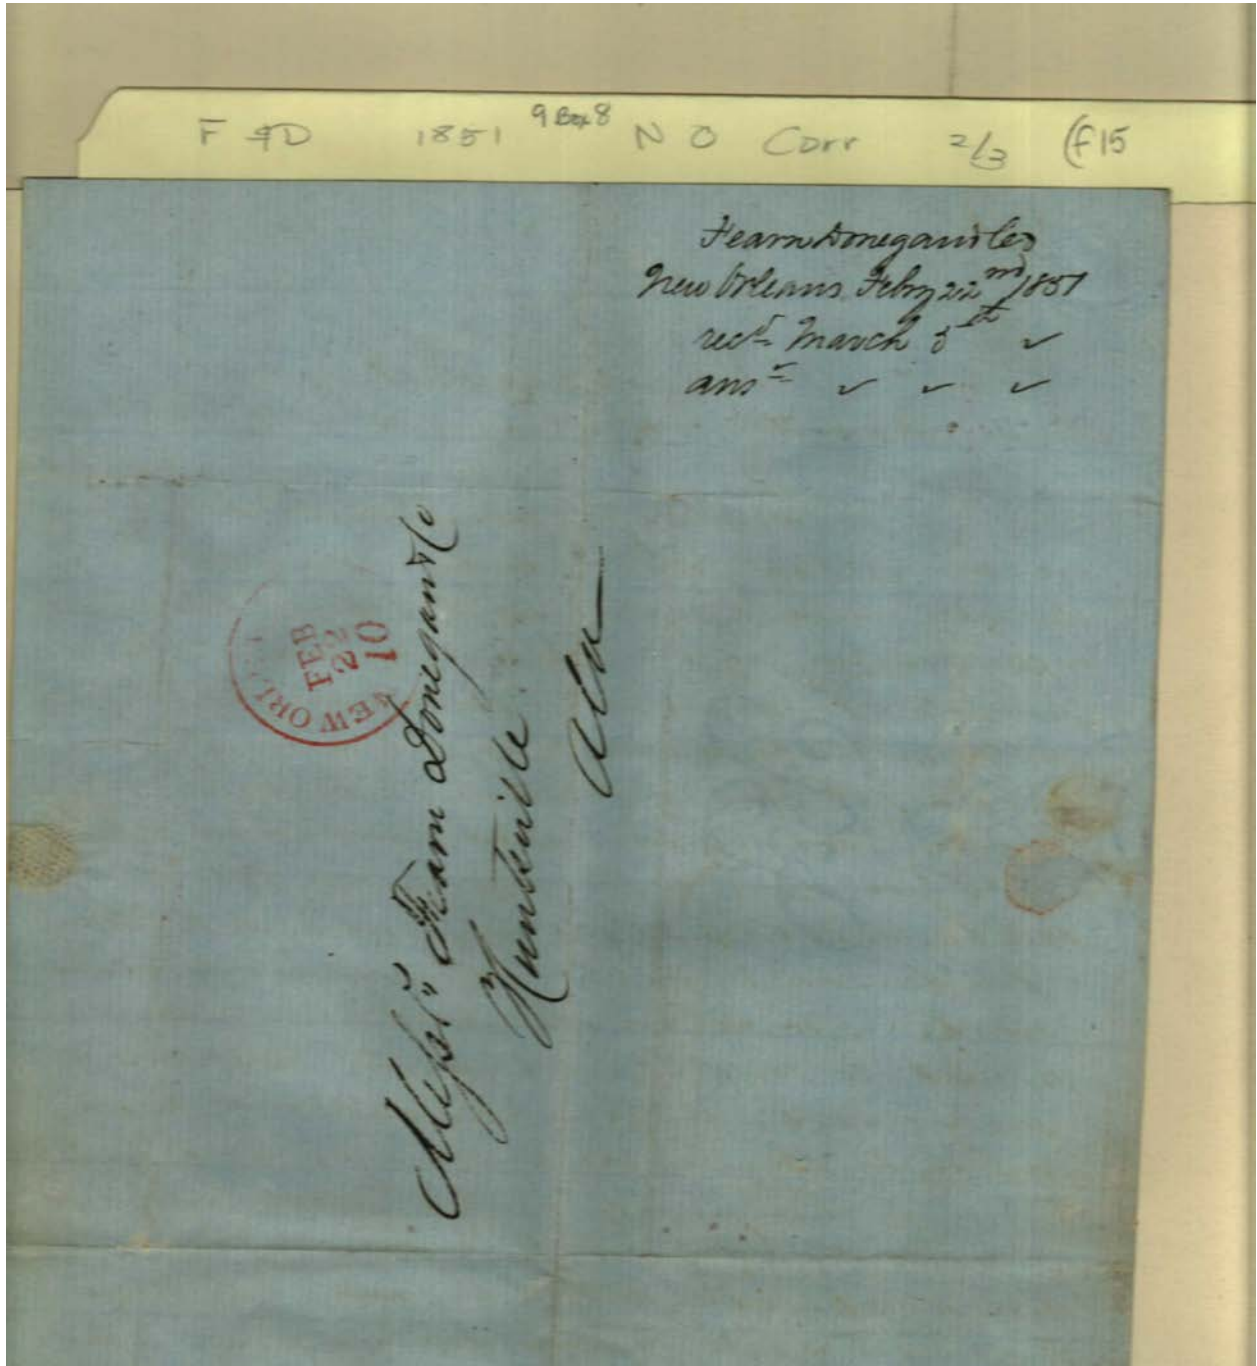 F & D 1851 9 Box 8 N O Corr 2/3 (F15
Fearn Donegan & Co
New Orleans Feby 22nd 1851
recd March 5th ✓
ansd ✓ ✓ ✓
NEW ORLE
FEB
22
10
Messrs Fearn Donegan & Co
Huntsville
Ala